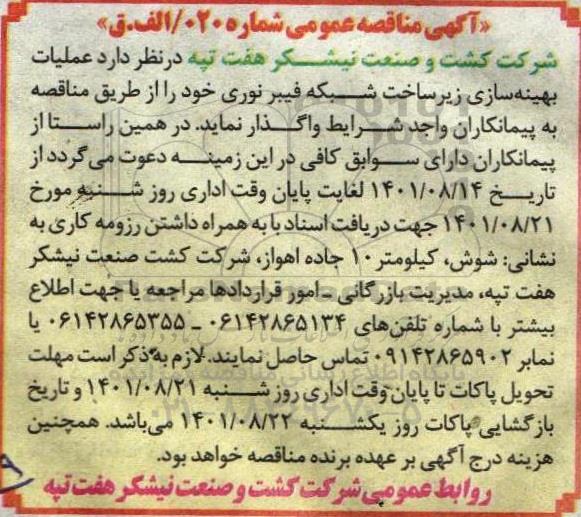 «آگهی مناقصه عمومی شماره ۰۲۰/الف.ق»
شرکت کشت و صنعت نیشکر هفت تپه درنظر دارد عملیات
بهینه‌سازی زیرساخت شبکه فیبر نوری خود را از طریق مناقصه
به پیمانکاران واجد شرایط واگذار نماید. در همین راستا از
پیمانکاران دارای سوابق کافی در این زمینه دعوت می‌گردد از
تاریخ ۱۴۰۱/۰۸/۱۴ لغایت پایان وقت اداری روز شنبه مورخ
۱۴۰۱/۰۸/۲۱ جهت دریافت اسناد با به همراه داشتن رزومه کاری به
نشانی: شوش، کیلومتر ۱۰ جاده اهواز، شرکت کشت صنعت نیشکر
هفت تپه، مدیریت بازرگانی ـ امور قراردادها مراجعه یا جهت اطلاع
بیشتر با شماره تلفن‌های ۰۶۱۴۲۸۶۵۱۳۴ ـ ۰۶۱۴۲۸۶۵۳۵۵ یا
نمابر ۰۹۱۴۲۸۶۵۹۰۲ تماس حاصل نمایند. لازم به ذکر است مهلت
تحویل پاکات تا پایان وقت اداری روز شنبه ۱۴۰۱/۰۸/۲۱ و تاریخ
بازگشایی پاکات روز یکشنبه ۱۴۰۱/۰۸/۲۲ می‌باشد. همچنین
هزینه درج آگهی بر عهده برنده مناقصه خواهد بود.
روابط عمومی شرکت کشت و صنعت نیشکر هفت تپه